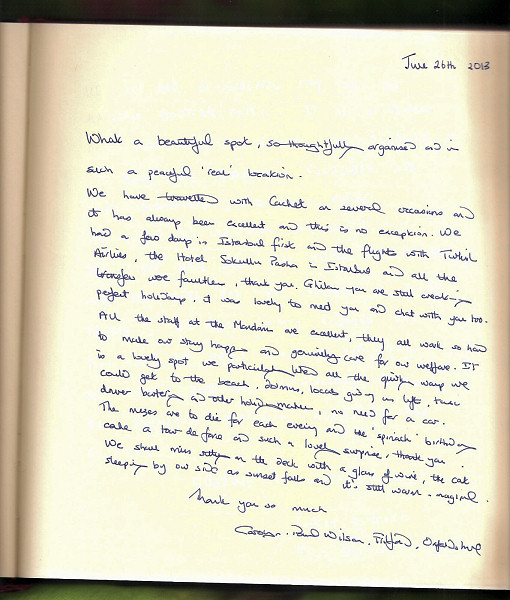 June 26th 2013
What a beautiful spot, so thoughtfully organised and in
such a peaceful 'real' location.
We have travelled with Cachet on several occasions and
it has always been excellent and this is no exception. We
had a few days in Istanbul first and the flights with Turkish
Airlines, the Hotel Sokullu Pasha in Istanbul and all the
transfers were faultless, thank you. you are still creating
perfect holidays. it was lovely to meet you and chat with you too.
All the staff at the Mandarin are excellent, they all work so hard
to make our stay happy and genuinely care for our welfare. IT
is a lovely spot we particularly liked all the quirky ways we
could get to the beach, dolmus, locals giving us lift, truck
driver bartering and other holiday makers, no need for a car.
The mezes are to die for each evening and the 'spinach' birthday
cake a tour de force and such a lovely surprise, thank you.
We shall miss sitting on the deck with a glass of wine, the cat
sleeping by our side as sunset falls and it's still warm - magical.
Thank you so much
Paul Wilson, Oxfordshire